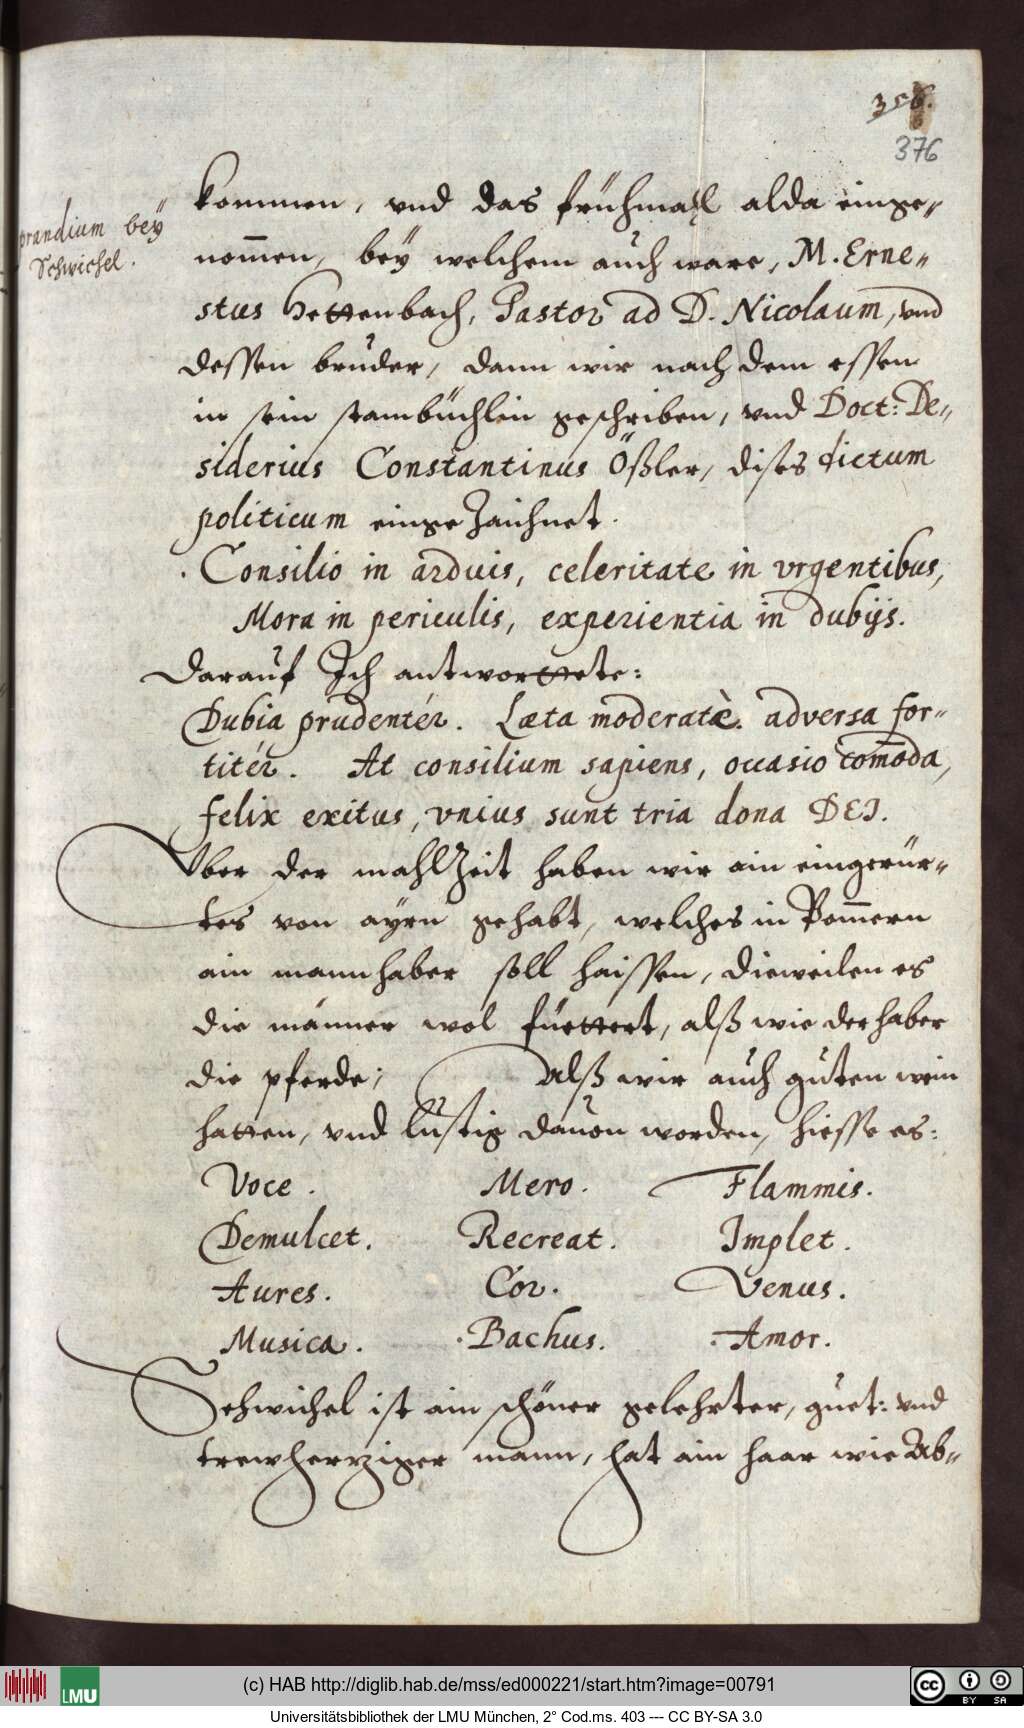 356.
376
prandium bey
Schwichel.
kommen, vnd das frühmahl alda einge„
nom̄en, beÿ welchem auch ware, M. Erne„
stus Hettenbach, Pastor ad D. Nicolaum, vnd
dessen bruder, dann wir nach dem essen
in sein stambüchlin geschriben, vnd Doct: De„
siderius Constantinus Ößler, dises dictum
politicum eingezaichnet.
Consilio in arduis, celeritate in vrgentibus,
Mora in periculis, experientia in dubijs.
Darauf Ich antworttete:
Dubia prudentér. Læta moderatè. adversa for„
titér. At consilium sapiens, occasio com̄oda,
felix exitus, vnius sunt tria dona DEI.
Vber der mahlzeit haben wir ain eingerür„
tes von ayrn gehabt, welches in Pom̄ern
ain mannhaber soll haissen, dieweilen es
die männer wol füettert, alß wie der haber
die pferde; Alß wir auch guten wein
hatten, vnd lustig dauon worden, hiesse es:
Voce. Mero. Flammis.
Demulcet. Recreat. Implet.
Aures. Cor. Venus.
Musica. Bachus. Amor.
Schwichel ist ain schöner gelehrter, guet: vnd
trewherziger mann, hat ain haar wie Ab„
(c) HAB http://diglib.hab.de/mss/ed000221/start.htm?image=00791
LMU
cc BY SA
Universitätsbibliothek der LMU München, 2° Cod.ms. 403 --- CC BY-SA 3.0